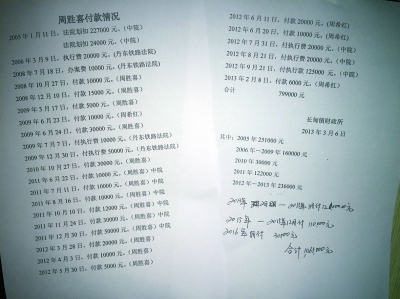 周胜喜付款情况
2005年1月11日，法院划扣227000元，（中院）
法院划扣24000元，（中院）
2006年3月9日，执行费20000元，（丹东铁路法院）
2008年7月18日，办案费20000元，（丹东铁路法院）
2008年10月27日，付款10000元，（周胜喜）
2008年12月10日，付款15000元，（周胜喜）
2009年3月17日，付款5000元，（周胜喜）
2009年6月23日，付款10000元，（周希红）
2009年6月24日，付款30000元，（周胜喜）
2009年7月7日，付执行费10000元，（丹东铁路法院）
2009年12月30日，付执行费50000元，（丹东铁路法院）
2010年10月27日，付款30000元，（周胜喜）
2011年6月22日，付款10000元，（周胜喜）中院
2011年7月11日，付款10000元，（周胜喜）中院
2011年8月16日，付款10000元，（周胜喜）中院
2011年10月10日，付款12000元，（周胜喜）中院
2011年11月24日，付款30000元，（周胜喜）中院
2011年11月30日，付款50000元，（周胜喜）中院
2012年3月28日，付款20000元，（周胜喜）
2012年6月3日，付款10000元，（周胜喜）
2012年5月30日，付款5000元，（周胜喜）
2012年6月11日，付款20000元，（周希红）
2012年6月20日，付款10000元，（周希红）
2012年7月31日，付执行款20000元，（中院）
2012年8月21日，付执行款20000元，（中院）
2012年9月21日，付执行款125000元，（中院）
2013年2月8日，付款6000元，（周希红）
合计 799000元
长甸镇财政所
2013年3月6日
其中：2005年251000元
2006年－2009年160000元
2010年30000元
2011年122000元
2012年－2013年236000元
2015年 110000元
2016年 30000元
合计